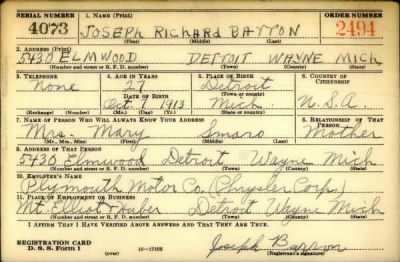 SERIAL NUMBER 1. NAME (Print) ORDER NUMBER
4073 JOSEPH RICHARD BARRON 2494
(First) (Middle) (Last)
2. ADDRESS (Print)
5430 ELMWOOD DETROIT WAYNE MICH
(Number and street or R. F. D. number) (Town) (County) (State)
3. TELEPHONE 4. AGE IN YEARS 5. PLACE OF BIRTH 6. COUNTRY OF CITIZENSHIP
None 27 Detroit
DATE OF BIRTH (Town or county)
Oct. 7 1913 Mich. U.S.A.
(Exchange) (Number) (Mo.) (Day) (Yr.) (State or country)
7. NAME OF PERSON WHO WILL ALWAYS KNOW YOUR ADDRESS 8. RELATIONSHIP OF THAT PERSON
Mrs. Mary Mother
(Mr., Mrs., Miss) (First) (Middle) (Last)
9. ADDRESS OF THAT PERSON
5430 Elmwood Detroit Wayne Mich
(Number and street or R. F. D. number) (Town) (County) (State)
10. EMPLOYER'S NAME
Plymouth Motor Co. (Chrysler Corp.)
11. PLACE OF EMPLOYMENT OR BUSINESS
Mt. Elliott & Huber Detroit Wayne Mich
(Number and street or R. F. D. number) (Town) (County) (State)
I AFFIRM THAT I HAVE VERIFIED ABOVE ANSWERS AND THAT THEY ARE TRUE.
REGISTRATION CARD
D. S. S. Form 1 (over) 16-17105 Joseph Barron
(Registrant's signature)